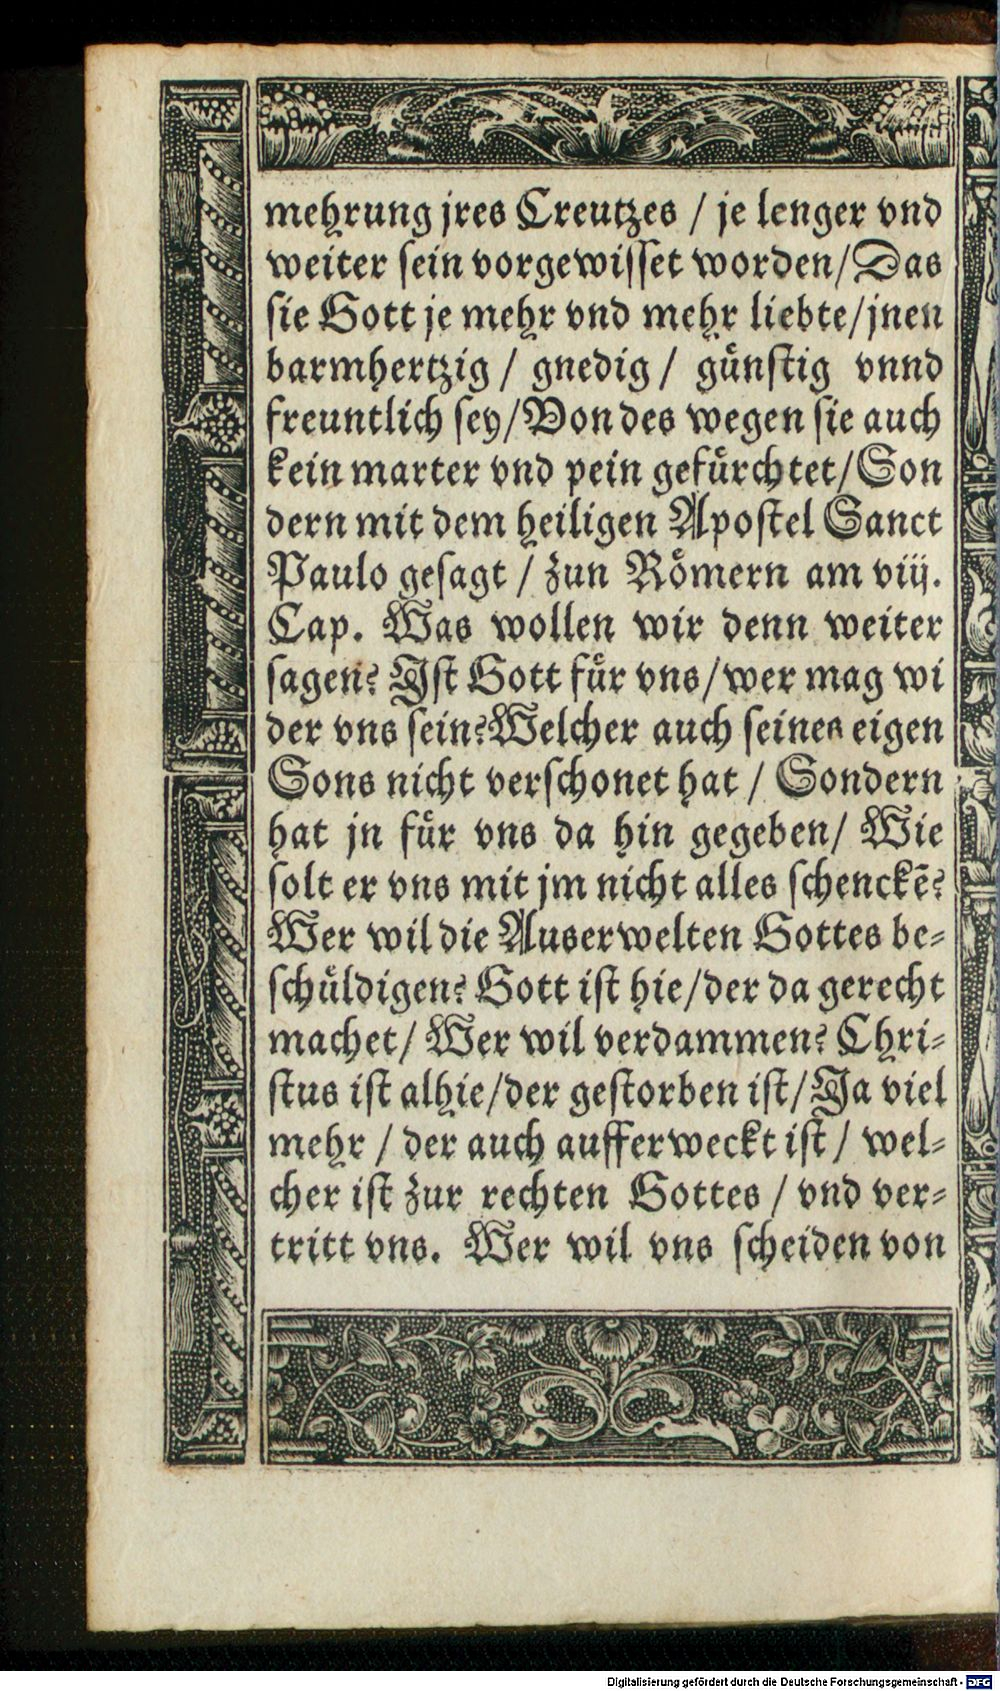 mehrung jres Creutzes / je lenger vnd
weiter sein vorgewisset worden / Das
sie Gott je mehr vnd mehr liebte / jnen
barmhertzig / gnedig / guͤnstig vnnd
freuntlich sey / Von des wegen sie auch
kein marter vnd pein gefuͤrchtet / Son
dern mit dem heiligen Apostel Sanct
Paulo gesagt / zun Roͤmern am viij.
Cap. Was wollen wir denn weiter
sagen? Ist Gott fuͤr vns / wer mag wi
der vns sein? Welcher auch seines eigen
Sons nicht verschonet hat / Sondern
hat jn fuͤr vns da hin gegeben / Wie
solt er vns mit jm nicht alles schenckē?
Wer wil die Auserwelten Gottes be-
schuͤldigen? Gott ist hie / der da gerecht
machet / Wer wil verdammen? Chri-
stus ist alhie / der gestorben ist / Ja viel
mehr / der auch aufferweckt ist / wel-
cher ist zur rechten Gottes / vnd ver-
tritt vns. Wer wil vns scheiden von
Digitalisierung gefördert durch die Deutsche Forschungsgemeinschaft - DFG